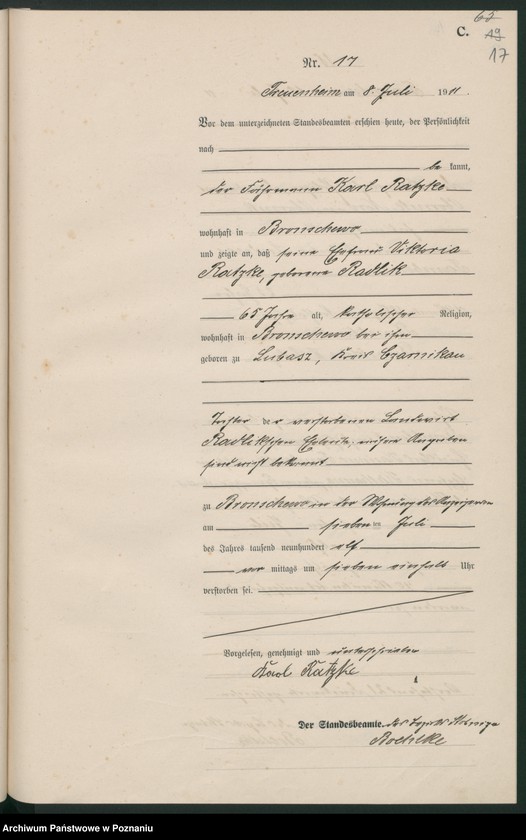 65
C. 49
17
Nr. 17
Treuenheim am 8. Juli 1911.
Vor dem unterzeichneten Standesbeamten erschien heute, der Persönlichkeit
nach
be kannt,
der Fährmann Karl Ratzke
wohnhaft in Bronschewo
und zeigte an, daß seine Ehefrau Viktoria
Ratzke, geborene Radlik
65 Jahre alt, katholischer Religion,
wohnhaft in Bronschewo bei ihm
geboren zu Lubasz, Kreis Czarnikau
Tochter der verstorbenen Landwirt
Radlikschen Eheleute; nähere Angaben
sind nicht bekannt
zu Bronschewo in der Wohnung des Anzeigenden
am sieben ten Juli
des Jahres tausend neunhundert elf
vor mittags um sieben einhalb Uhr
verstorben sei.
Vorgelesen, genehmigt und unterschrieben
Karl Ratzke
Der Standesbeamte.
Archiwum Państwowe w Poznaniu